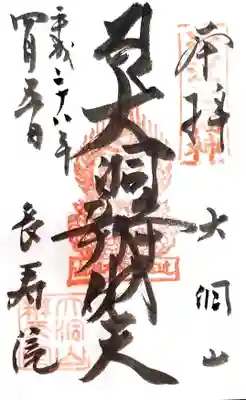 奉拝
大洞山
大洞弁財天
平成二十八年
四月五日
長寿院